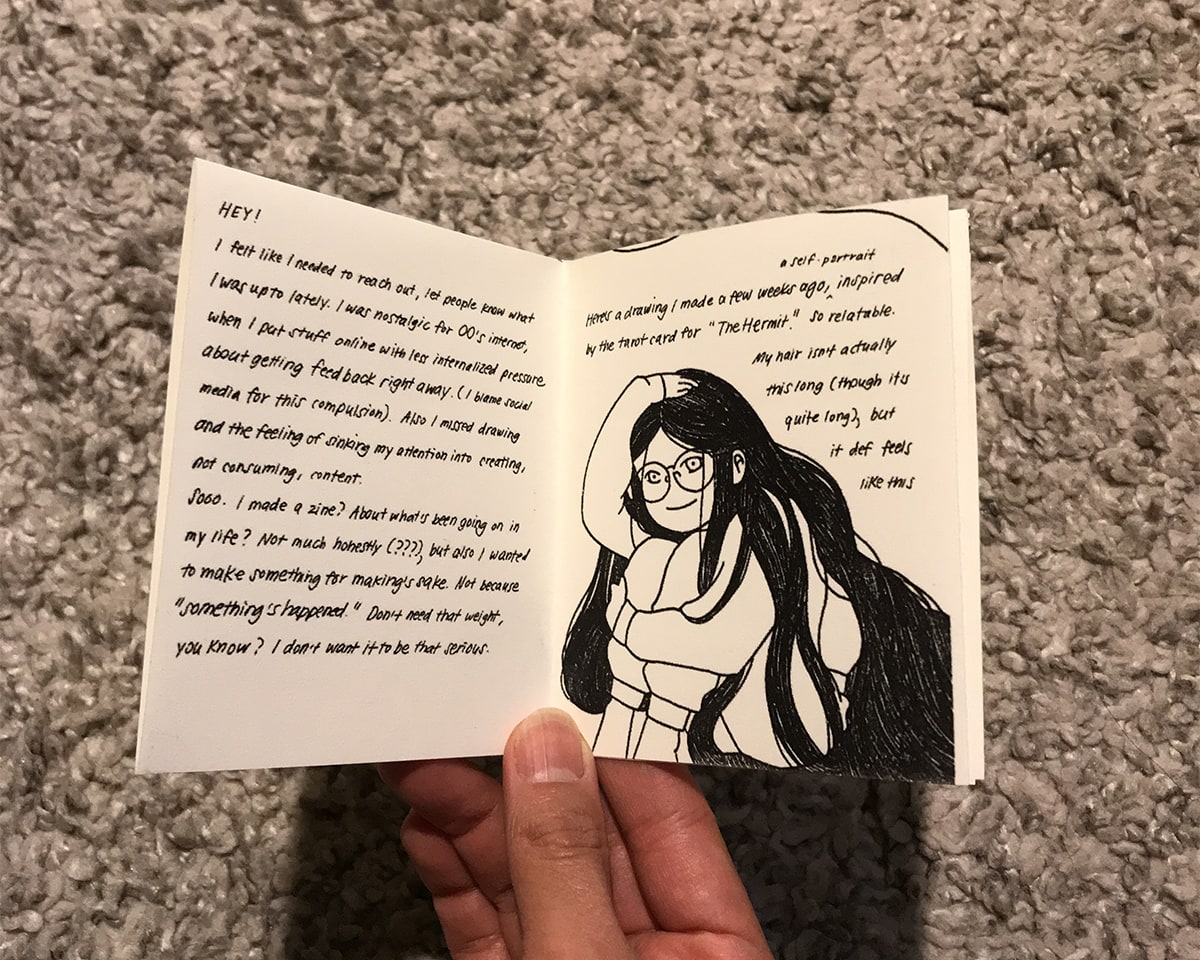 HEY!
I felt like I needed to reach out, let people know what
I was up to lately. I was nostalgic for 00's internet,
when I put stuff online with less internalized pressure
about getting feedback right away. (I blame social
media for this compulsion). Also I missed drawing
and the feeling of sinking my attention into creating,
not consuming, content.
Sooo. I made a zine? About what's been going on in
my life? Not much honestly (???), but also I wanted
to make something for making's sake. Not because
"something's happened." Don't need that weight,
you know? I don't want it to be that serious.
a self-portrait
Here's a drawing I made a few weeks ago, inspired
by the tarot card for "The Hermit." So relatable.
My hair isn't actually
this long (though it's
quite long), but
it def feels
like this